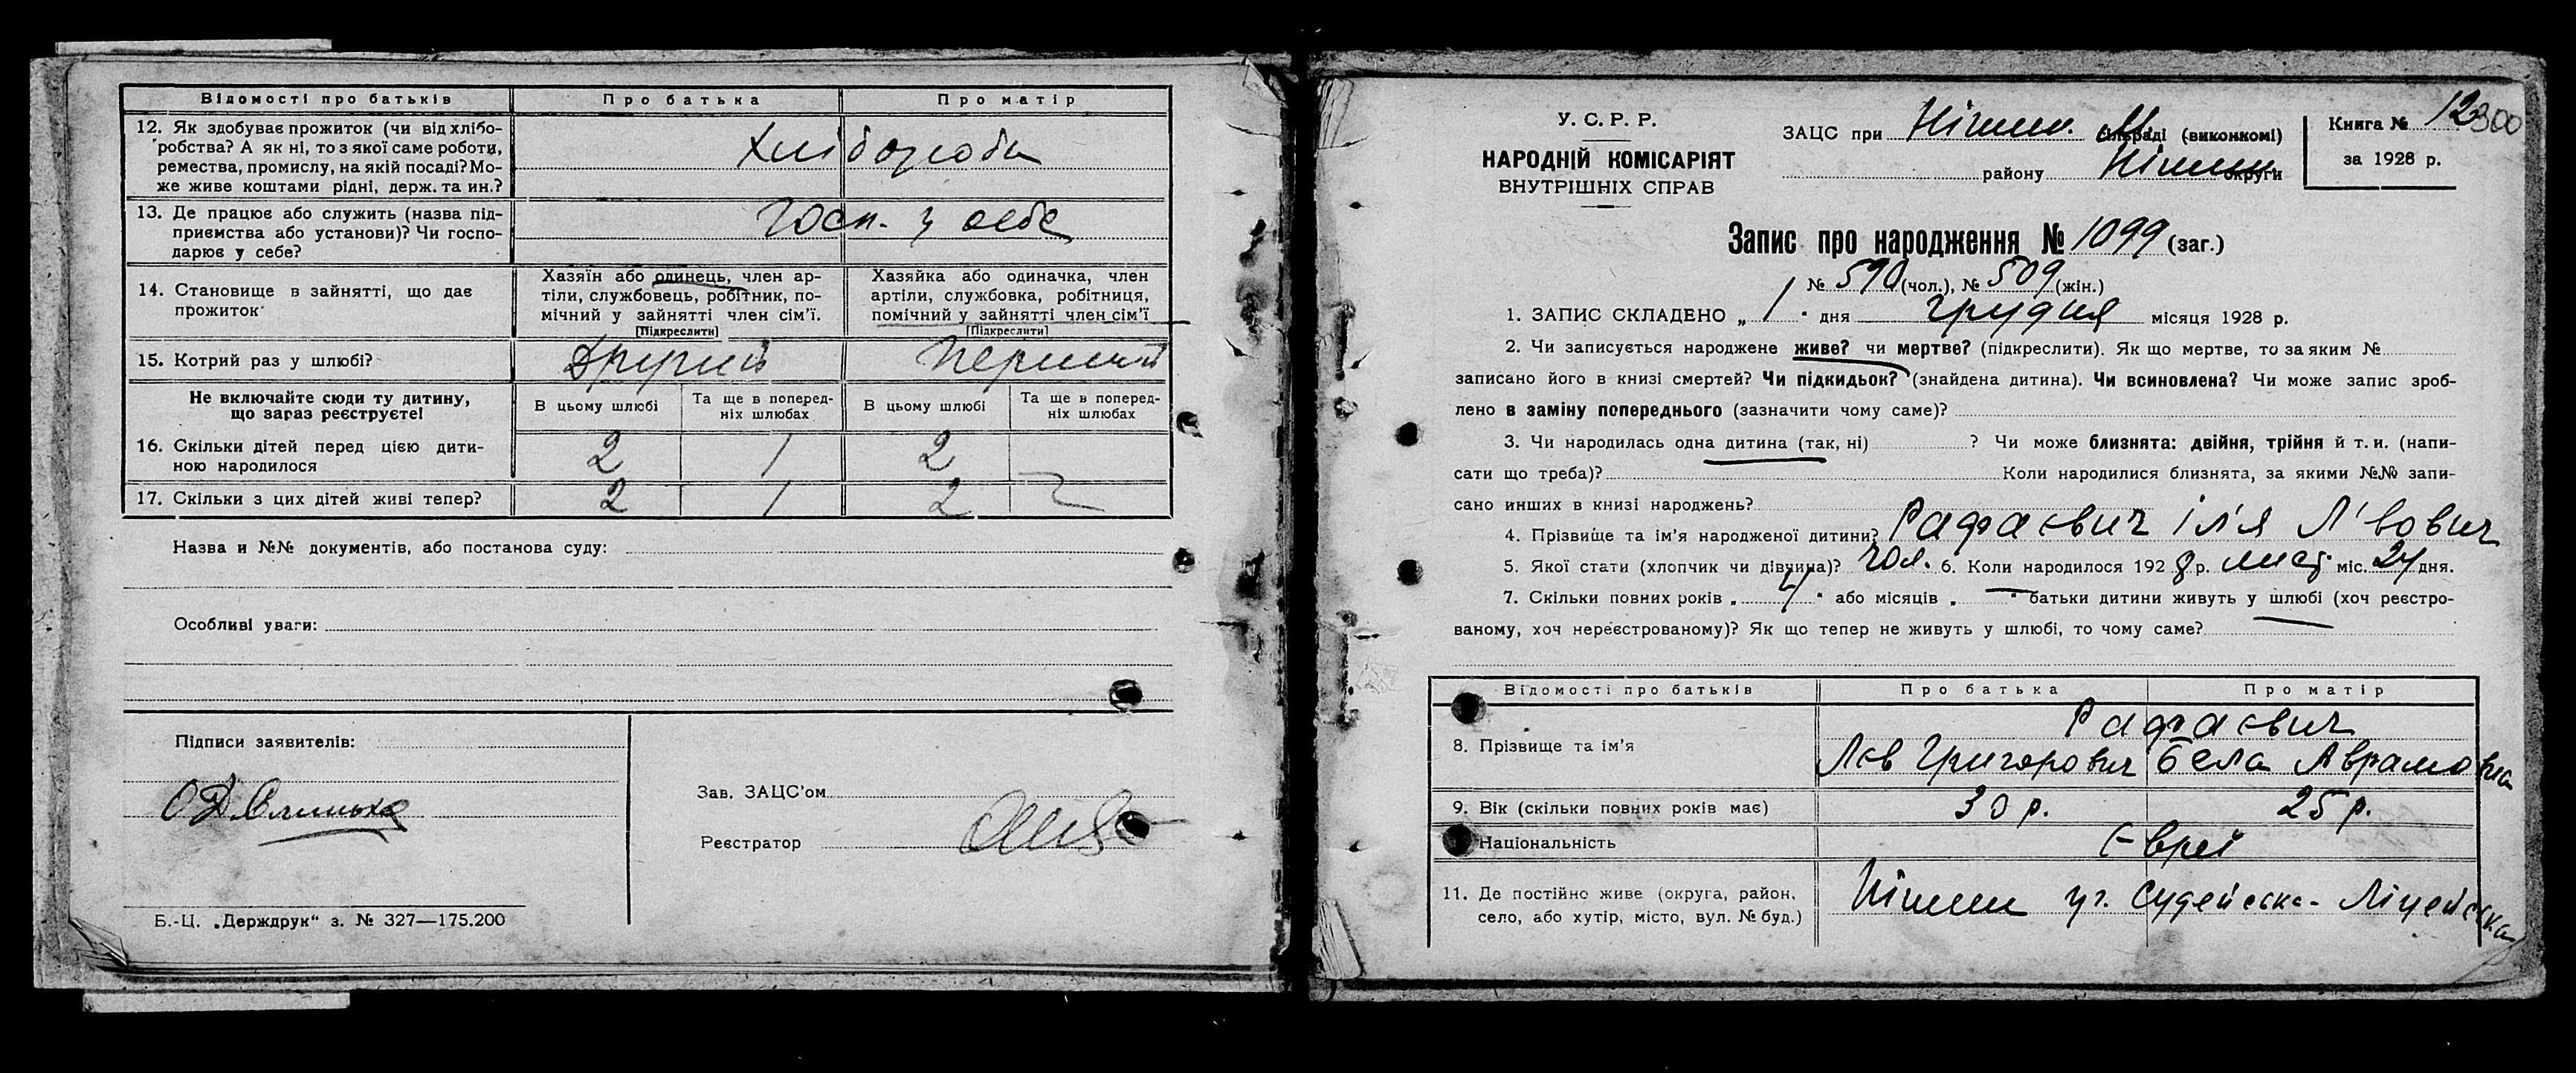 Відомості про батьків Про батька Про матір
12. Як здобуває прожиток (чи від хлібо-
робства? А як ні, то з якої саме роботи,
ремества, промислу, на якій посаді? Мо-
же живе коштами рідні, держ. та ин.?
Хлібороби
13. Де працює або служить (назва під-
приємства або установи)? Чи госпо-
дарює у себе?
Госп. у себе
14. Становище в зайнятті, що дає
прожиток
Хазяїн або одинець, член ар-
тіли, службовець, робітник, по-
мічний у зайнятті член сім'ї.
[Підкреслити]
Хазяйка або одиначка, член
артіли, службовка, робітниця,
помічний у зайнятті член сім'ї
[Підкреслити]
15. Котрий раз у шлюбі? Другий Перший
Не включайте сюди ту дитину,
що зараз реєструєте!
В цьому шлюбі Та ще в поперед-
ніх шлюбах В цьому шлюбі Та ще в поперед-
ніх шлюбах
16. Скільки дітей перед цією дити-
ною народилося 2 1 2
17. Скільки з цих дітей живі тепер? 2 1 2
Назва и №№ документів, або постанова суду:
Особливі уваги:
Підписи заявителів:
Зав. ЗАЦС'ом
Реєстратор
Б.-Ц. „Держдрук“ з. № 327—175.200
У. С. Р. Р.
НАРОДНІЙ КОМІСАРІЯТ
ВНУТРІШНІХ СПРАВ
ЗАЦС при Ніжин. М. сільраді (виконкомі)
району Ніжин округи
Книга № 12 300
за 1928 р.
Запис про народження № 1099 (заг.)
№ 590 (чол.), № 509 (жін.)
1. ЗАПИС СКЛАДЕНО „ 1 “ дня грудня місяця 1928 р.
2. Чи записується народжене живе? чи мертве? (підкреслити). Як що мертве, то за яким №
записано його в книзі смертей? Чи підкидьок? (знайдена дитина). Чи всиновлена? Чи може запис зроб-
лено в заміну попереднього (зазначити чому саме)?
3. Чи народилась одна дитина (так, ні) ? Чи може близнята: двійня, трійня й т. и. (напи-
сати що треба)? Коли народилися близнята, за якими №№ запи-
сано инших в книзі народжень?
4. Прізвище та ім'я народженої дитини? Рафаєвич Іл'я Л'вович
5. Якої стати (хлопчик чи дівчина)? чол. 6. Коли народилося 1928 р. лист. міс. 24 дня.
7. Скільки повних років „ 4 “ або місяців „ “ батьки дитини живуть у шлюбі (хоч реєстро-
ваному, хоч нереєстрованому)? Як що тепер не живуть у шлюбі, то чому саме?
Відомості про батьків Про батька Про матір
Рафаєвич
8. Прізвище та ім'я Лєв Григорович Бела Аврамовна
9. Вік (скільки повних років має) 30 р. 25 р.
Національність Євреї
11. Де постійно живе (округа, район,
село, або хутір, місто, вул. № буд.)
Ніжин уг. Судейська - Ліцейська